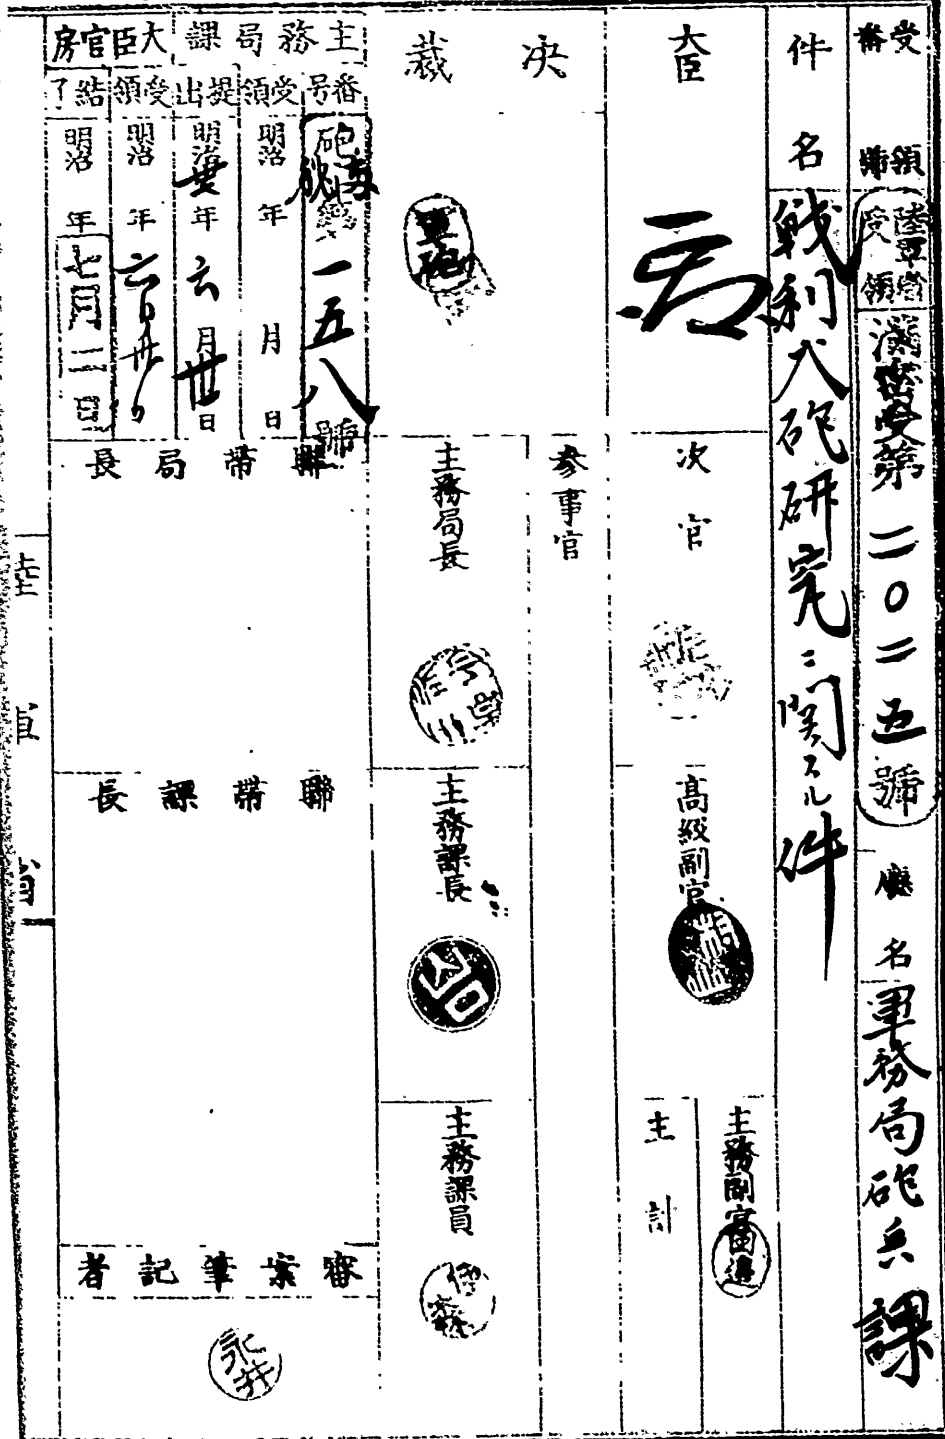 受領番號
陸軍省受領
満密受第二〇二五號
廳名
軍務局砲兵課
件名
戦利大砲研究ニ関スル件
大臣
次官
高級副官
主務副官
主計
参事官
決裁
軍砲
主務局長
主務課長
主務課員
主務局課
番号
一五八號
受領
明治 年 月 日
提出
明治卅年六月卅日
大臣官房
受領
明治 年六月卅日
結了
明治 年七月二日
聯帯局長
聯帯課長
審案筆記者
永井
陸軍省